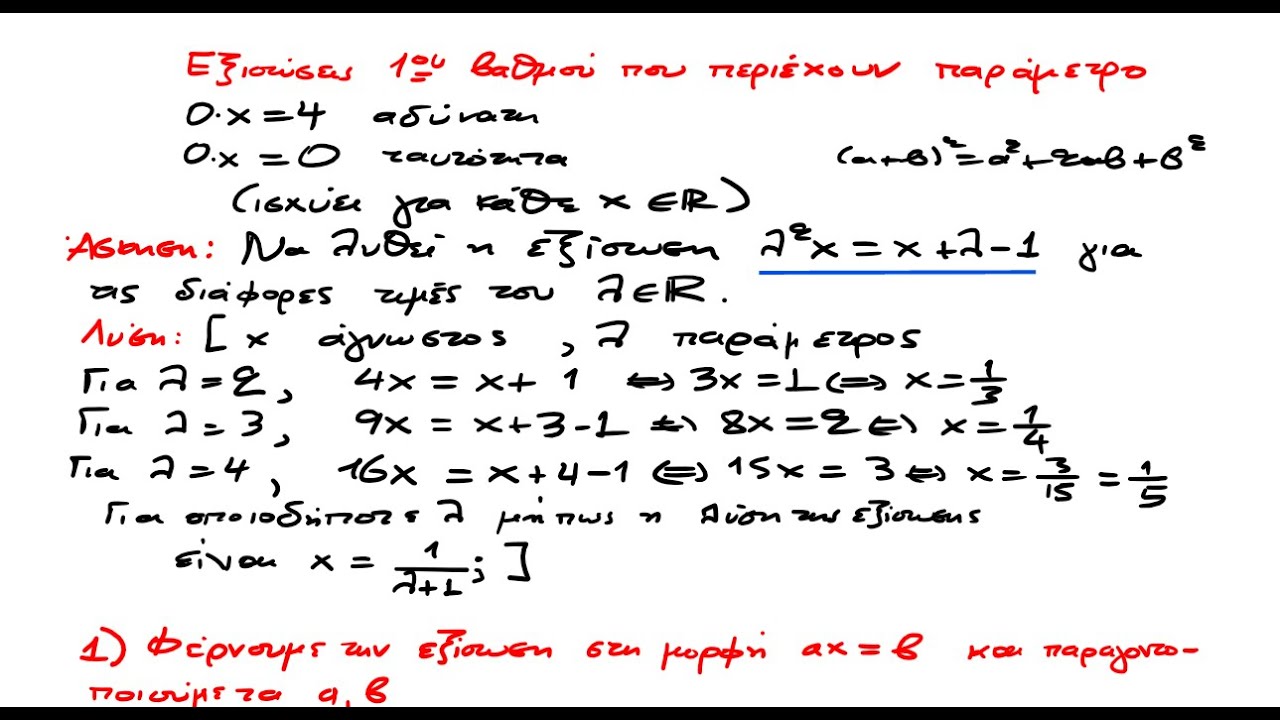 Εξισώσεις 1ου βαθμού που περιέχουν παράμετρο
0·x = 4 αδύνατη
0·x = 0 ταυτότητα (α+β)² = α² + 2αβ + β²
(ισχύει για κάθε x ∈ ℝ)
Άσκηση: Να λυθεί η εξίσωση λ²x = x + λ - 1 για
τις διάφορες τιμές του λ ∈ ℝ.
Λύση: [ x άγνωστος, λ παράμετρος
Για λ = 2, 4x = x + 1 ⇔ 3x = 1 ⇔ x = 1/3
Για λ = 3, 9x = x + 3 - 1 ⇔ 8x = 2 ⇔ x = 1/4
Για λ = 4, 16x = x + 4 - 1 ⇔ 15x = 3 ⇔ x = 3/15 = 1/5
Για οποιοδήποτε λ μήπως η λύση της εξίσωσης
είναι x = 1/(λ+1) ; ]
1) Φέρνουμε την εξίσωση στη μορφή αx = β και παραγοντο-
ποιούμε τα α, β